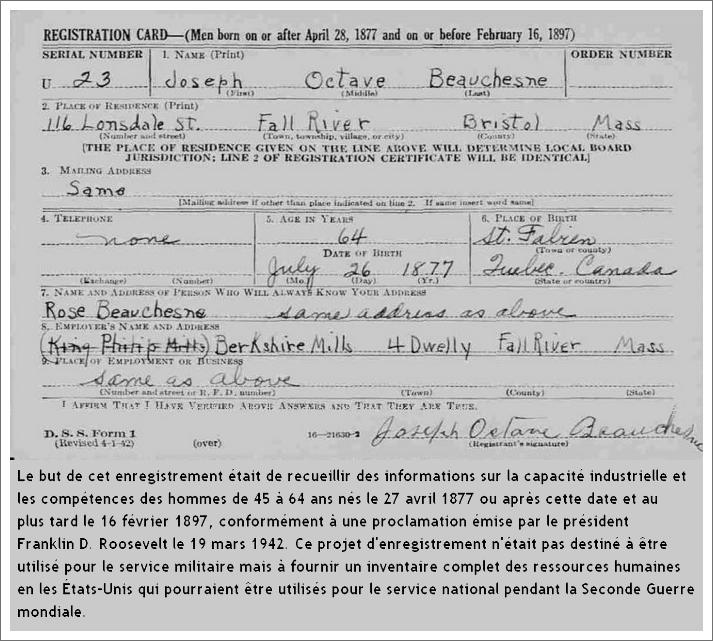 REGISTRATION CARD—(Men born on or after April 28, 1877 and on or before February 16, 1897)
SERIAL NUMBER 1. NAME (Print) ORDER NUMBER
U 23 Joseph Octave Beauchesne
(First) (Middle) (Last)
2. PLACE OF RESIDENCE (Print)
116 Lonsdale St. Fall River Bristol Mass
(Number and street) (Town, township, village, or city) (County) (State)
[THE PLACE OF RESIDENCE GIVEN ON THE LINE ABOVE WILL DETERMINE LOCAL BOARD
JURISDICTION; LINE 2 OF REGISTRATION CERTIFICATE WILL BE IDENTICAL]
3. MAILING ADDRESS
Same
[Mailing address if other than place indicated on line 2. If same insert word same]
4. TELEPHONE 5. AGE IN YEARS 6. PLACE OF BIRTH
none 64 St. Fabien
DATE OF BIRTH (Town or county)
July 26 1877 Quebec. Canada
(Exchange) (Number) (Mo.) (Day) (Yr.) (State or country)
7. NAME AND ADDRESS OF PERSON WHO WILL ALWAYS KNOW YOUR ADDRESS
Rose Beauchesne same address as above
8. EMPLOYER'S NAME AND ADDRESS
(King Philip Mills) Berkshire Mills 4 Dwelly Fall River Mass
9. PLACE OF EMPLOYMENT OR BUSINESS
same as above
(Number and street or R. F. D. number) (Town) (County) (State)
I AFFIRM THAT I HAVE VERIFIED ABOVE ANSWERS AND THAT THEY ARE TRUE.
D. S. S. Form 1
(Revised 4-1-42) (over) 16—21630-2 Joseph Octave Beauchesne
(Registrant's signature)
Le but de cet enregistrement était de recueillir des informations sur la capacité industrielle et
les compétences des hommes de 45 à 64 ans nés le 27 avril 1877 ou après cette date et au
plus tard le 16 février 1897, conformément à une proclamation émise par le président
Franklin D. Roosevelt le 19 mars 1942. Ce projet d'enregistrement n'était pas destiné à être
utilisé pour le service militaire mais à fournir un inventaire complet des ressources humaines
en les États-Unis qui pourraient être utilisés pour le service national pendant la Seconde Guerre
mondiale.